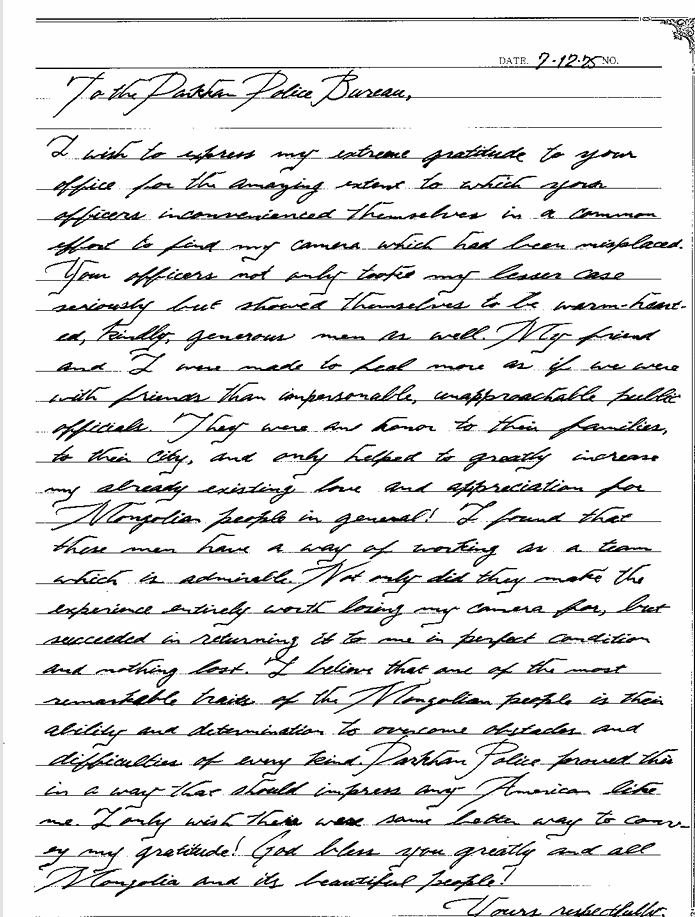 DATE. 7-12-75 NO.
To the Darkhan Police Bureau,
I wish to express my extreme gratitude to your
office for the amazing extent to which your
officers inconvenienced themselves in a common
effort to find my camera which had been misplaced.
Your officers not only tooke my lesser case
seriously but showed themselves to be warm-heart-
ed, kindly, generous men as well. My friend
and I were made to feel more as if we were
with friends than impersonable, unapproachable public
officials. They were an honor to their families,
to their city, and only helped to greatly increase
my already existing love and appreciation for
Mongolian people in general! I found that
these men have a way of working as a team
which is admirable. Not only did they make the
experience entirely worth losing my camera for, but
succeeded in returning it to me in perfect condition
and nothing lost. I believe that one of the most
remarkable traits of the Mongolian people is their
ability and determination to overcome obstacles and
difficulties of every kind. Darkhan Police proved this
in a way that should impress any American like
me. I only wish there were some better way to conv-
ey my gratitude! God bless you greatly and all
Mongolia and its beautiful people!
Yours respectfully,